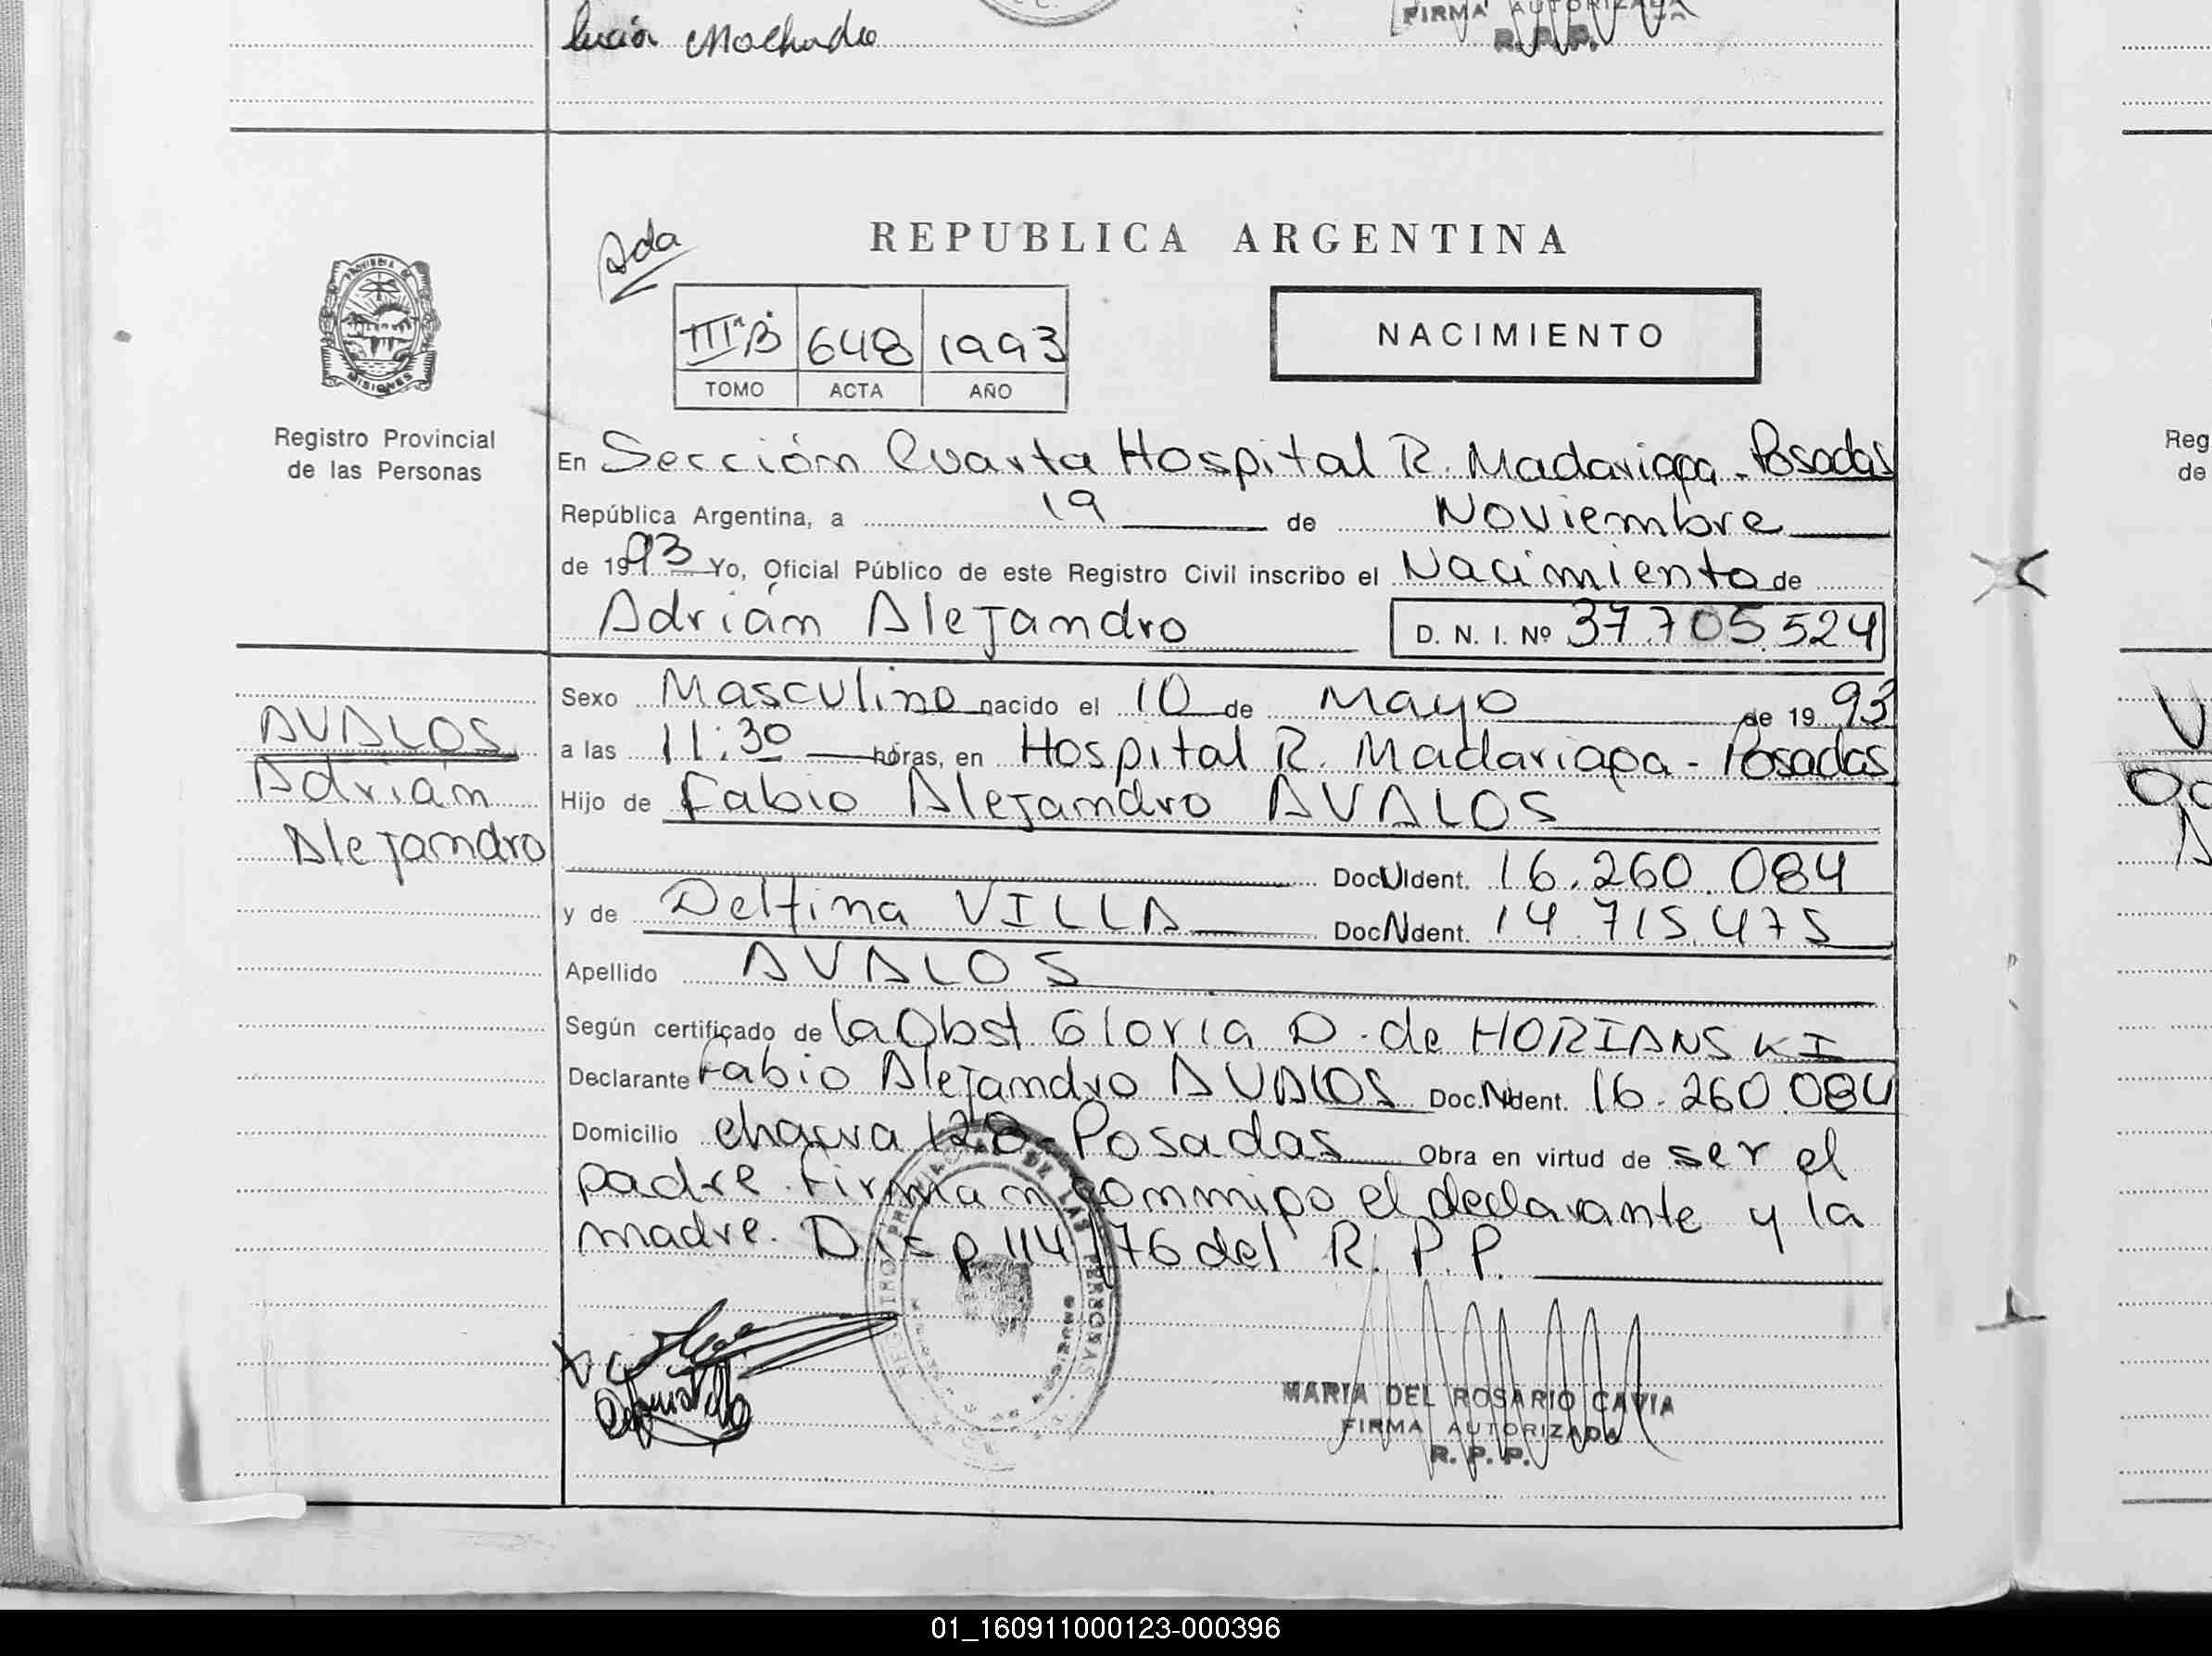 Lucia Machado
FIRMA AUTORIZADA
R. P. P.
Ada
REPUBLICA ARGENTINA
PROVINCIA DE
MISIONES
IIIº "B" 648 1993
TOMO ACTA AÑO
NACIMIENTO
Registro Provincial
de las Personas
En Sección Cuarta Hospital R. Madariaga - Posadas
República Argentina, a 19 de Noviembre
de 1993 Yo, Oficial Público de este Registro Civil inscribo el Nacimiento de
Adrián Alejandro D. N. I. Nº 37.705.524
AVALOS
Adrián
Alejandro
Sexo Masculino nacido el 10 de Mayo de 19 93
a las 11:30 horas, en Hospital R. Madariaga - Posadas
Hijo de Fabio Alejandro AVALOS
Doc U Ident. 16.260.084
y de Delfina VILLA Doc N Ident. 14.715.475
Apellido AVALOS
Según certificado de la Obst Gloria D. de HORIANSKI
Declarante Fabio Alejandro AVALOS Doc. N Ident. 16.260.084
Domicilio chacra 128 - Posadas Obra en virtud de ser el
padre. Firman conmmigo el declarante y la
madre. Disp 114/76 del R. P. P.
MARIA DEL ROSARIO CAVIA
FIRMA AUTORIZADA
R. P. P.
Reg
de
01_160911000123-000396